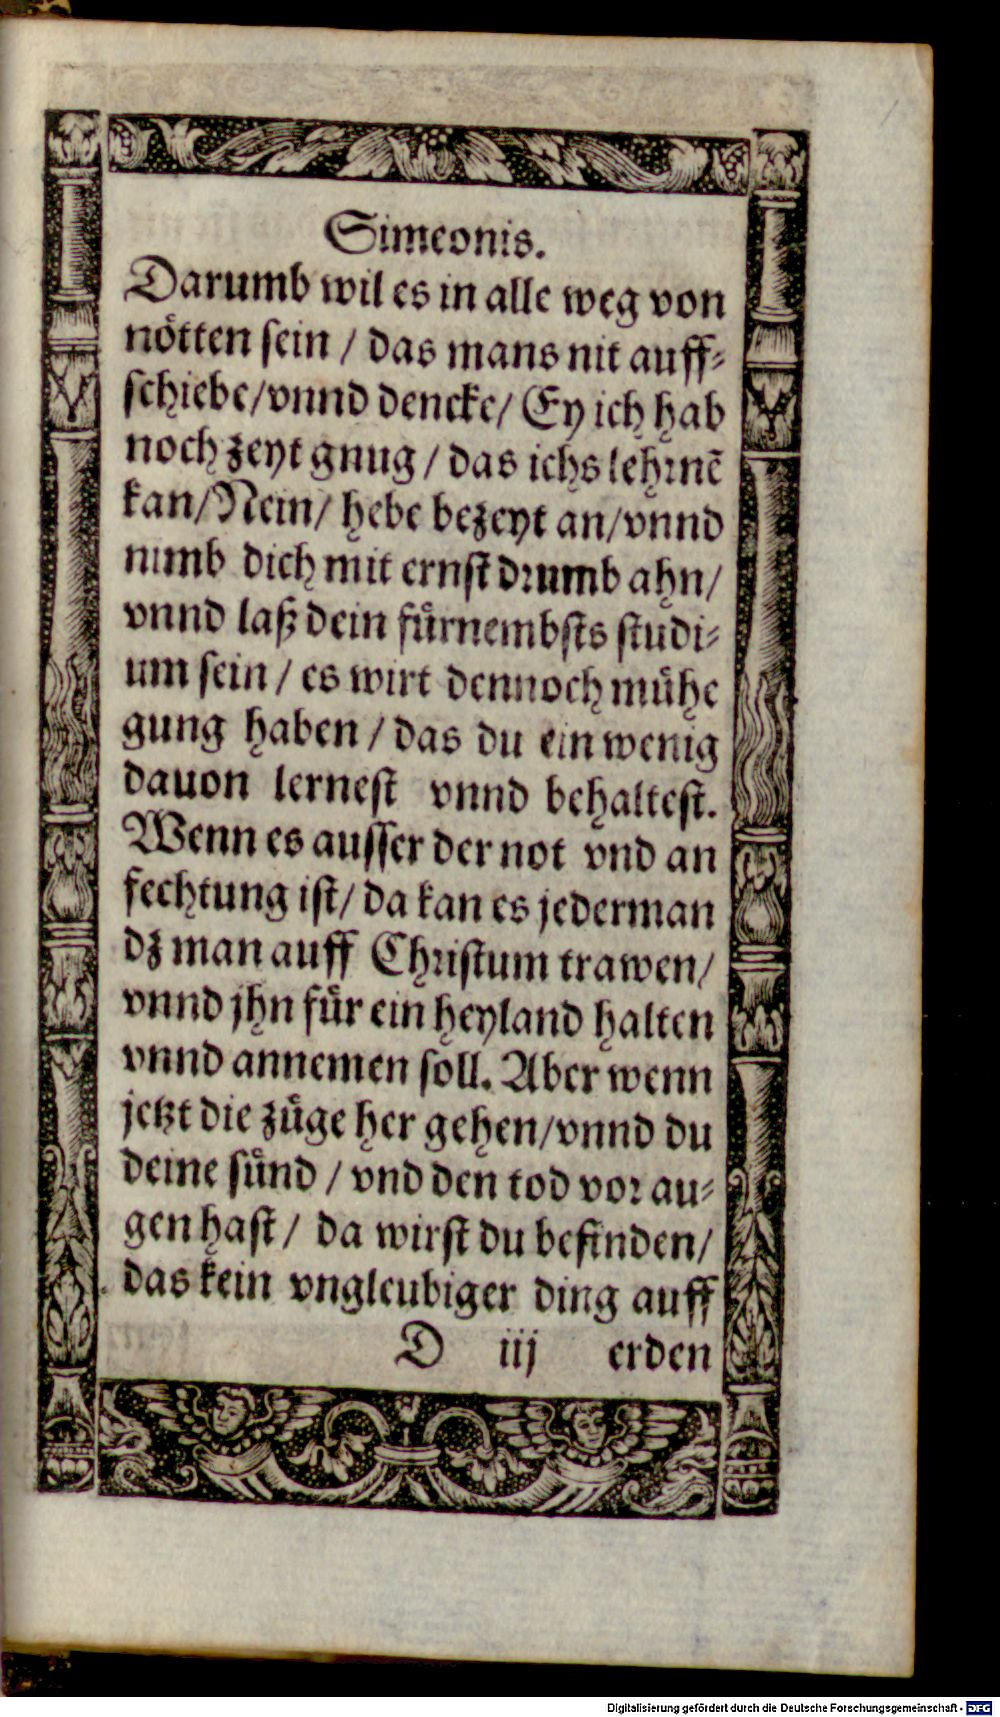 Simeonis.
Darumb wil es in alle weg von
nötten sein / das mans nit auff-
schiebe/vnnd dencke/ Ey ich hab
noch zeyt gnug / das ichs lehrnẽ
kan/Nein/ hebe bezeyt an/vnnd
nimb dich mit ernst drumb ahn/
vnnd laß dein fürnembsts studi-
um sein / es wirt dennoch mühe
gung haben / das du ein wenig
dauon lernest vnnd behaltest.
Wenn es ausser der not vnd an
fechtung ist/ da kan es jederman
dz man auff Christum trawen/
vnnd jhn für ein heyland halten
vnnd annemen soll. Aber wenn
jetzt die züge her gehen/vnnd du
deine sünd / vnd den tod vor au-
gen hast / da wirst du befinden/
das kein vngleubiger ding auff
D iij erden
Digitalisierung gefördert durch die Deutsche Forschungsgemeinschaft - DFG